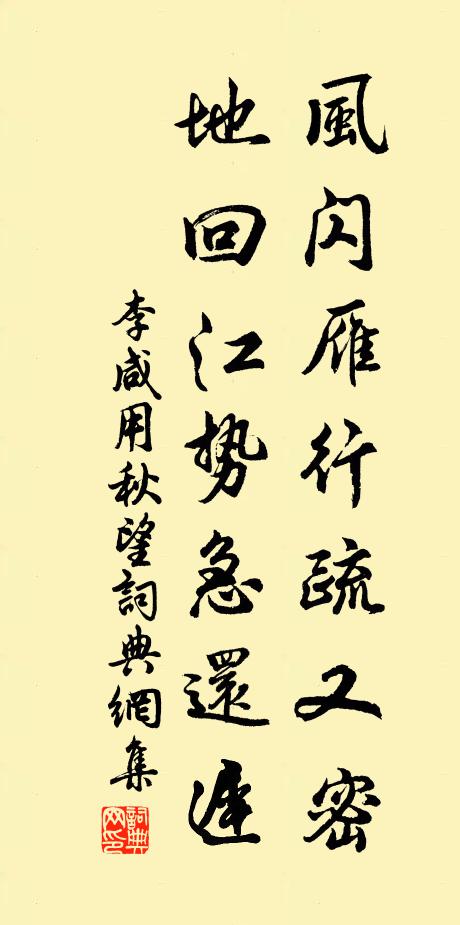 風闪雁行疏又密
地回江势急還遲
李咸用秋望詞典網集
詞典網印